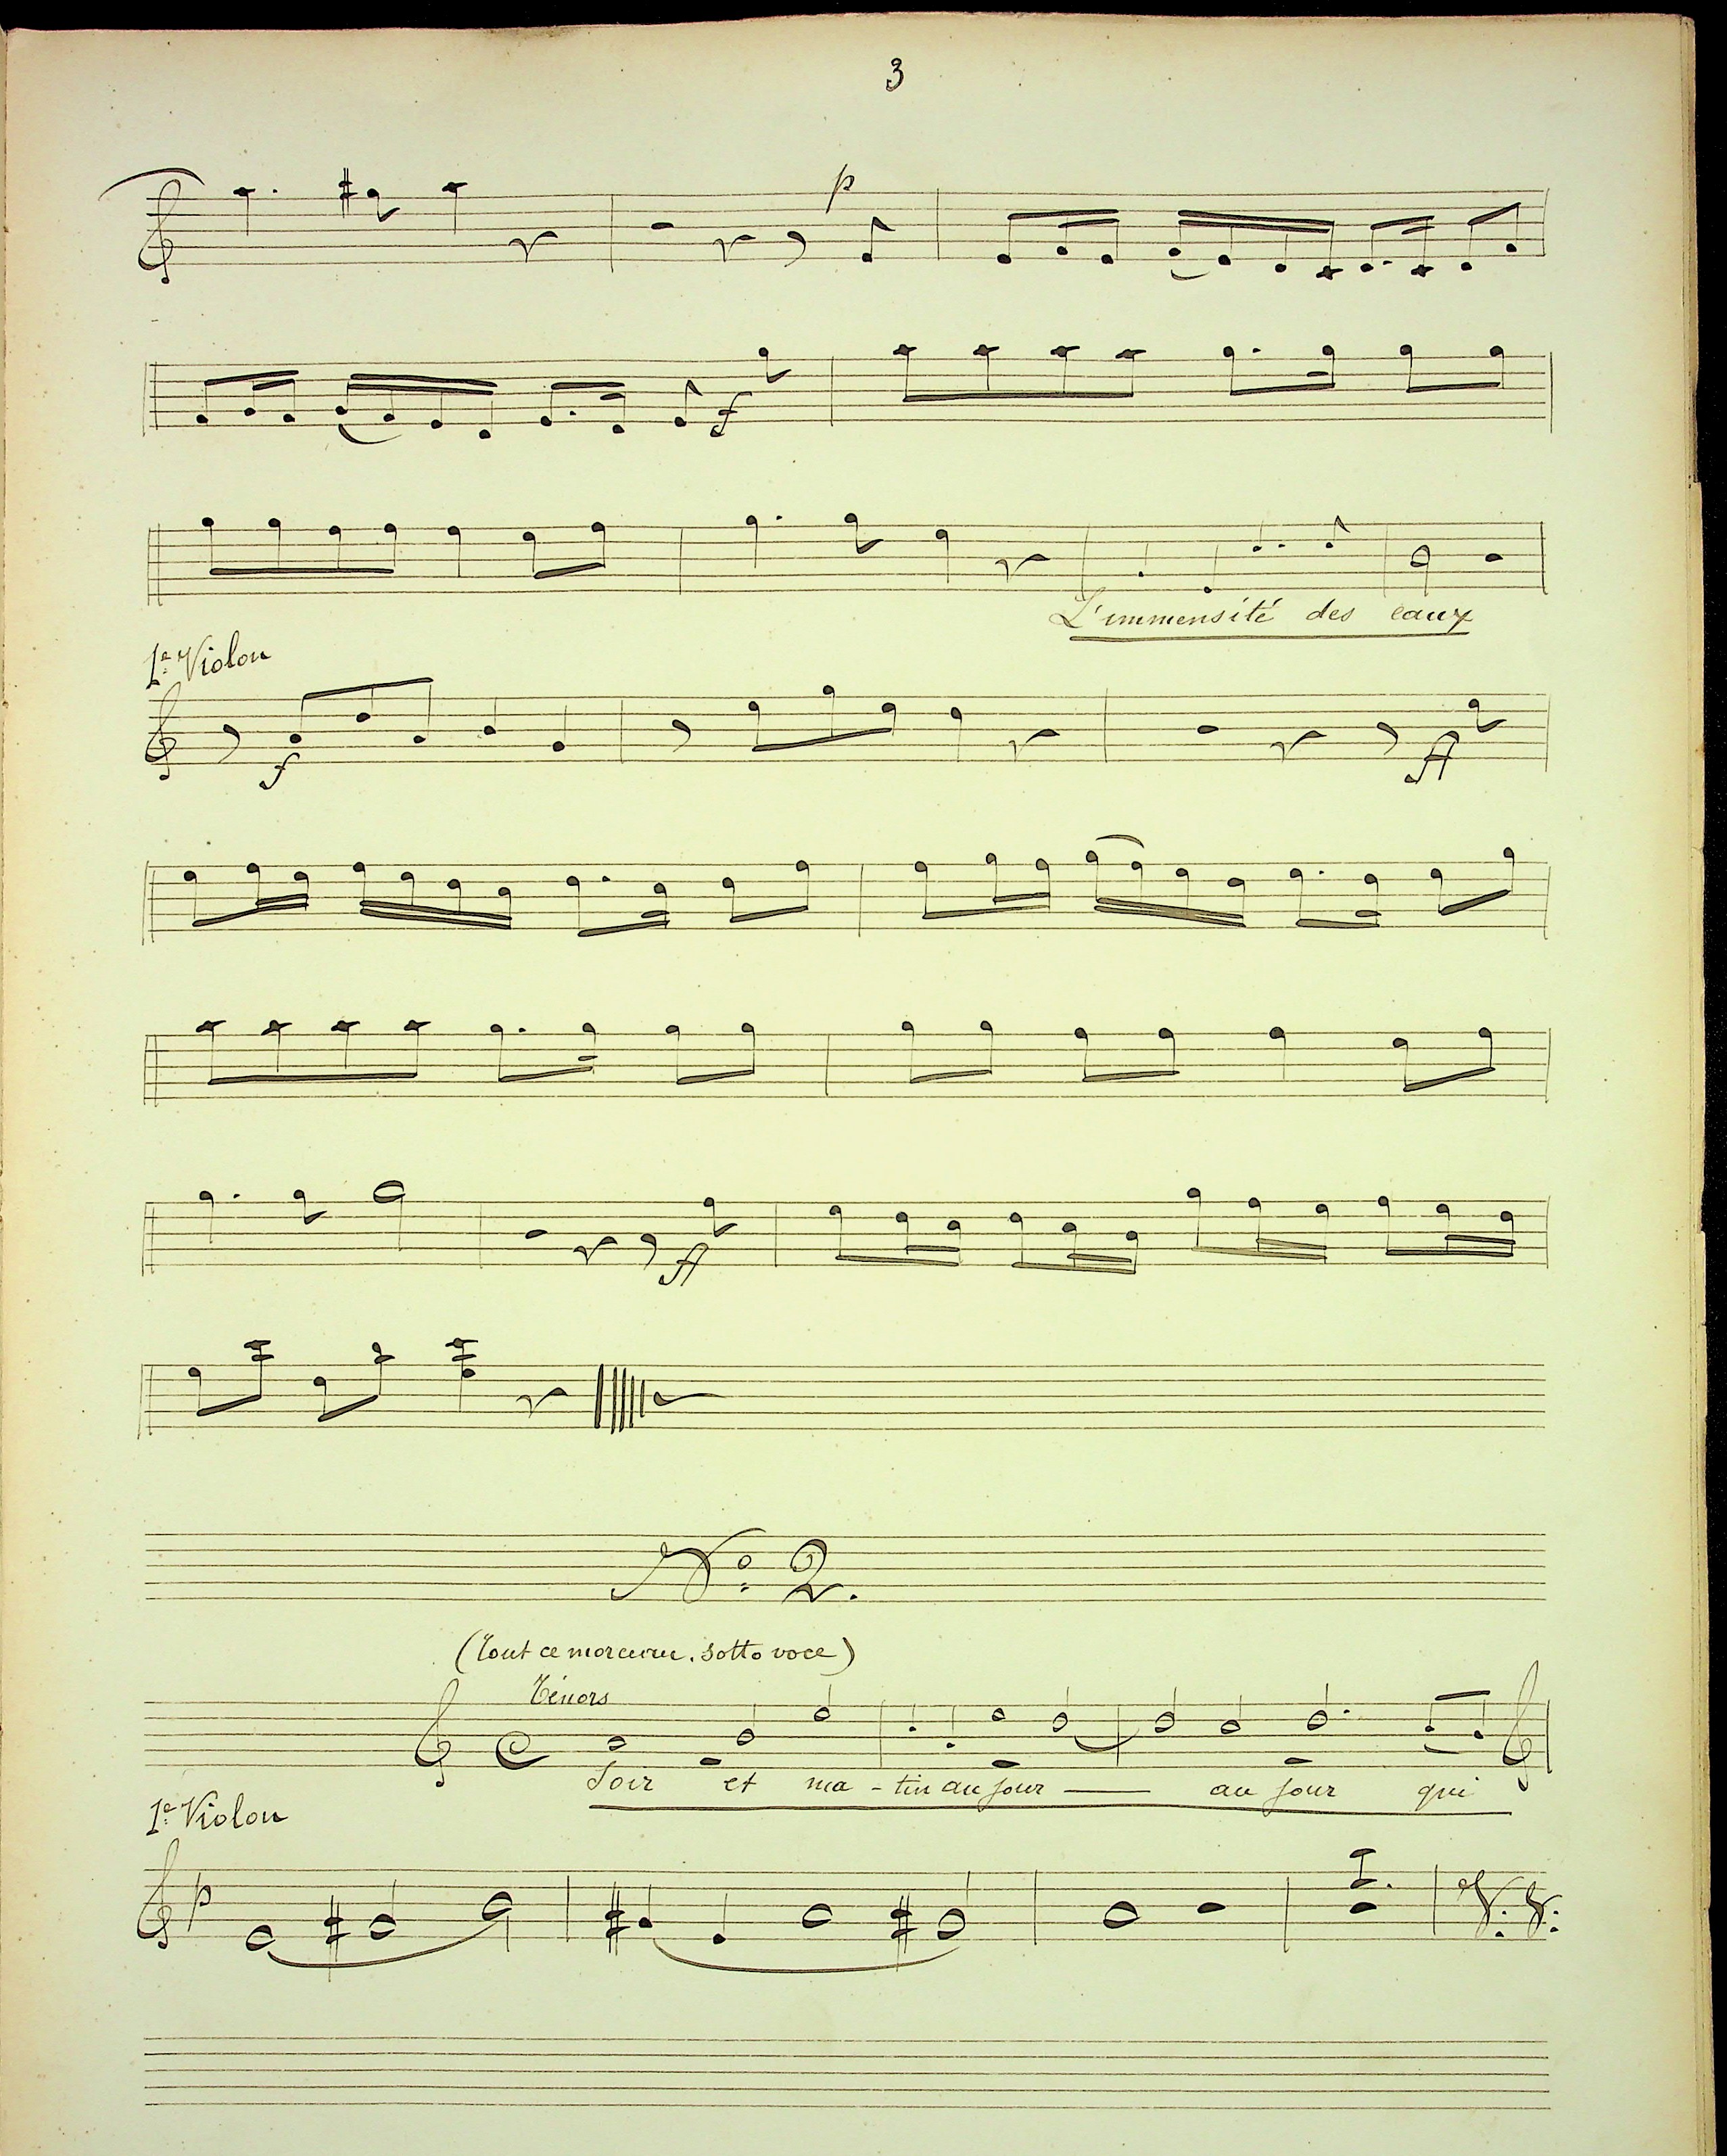 3
p
f
L'immensité des eaux
1.er Violon
f
ff
ff
No. 2.
(Tout ce morceau. sotto voce)
Ténors
Soir et ma - tin au jour — au jour qui
1.er Violon
p